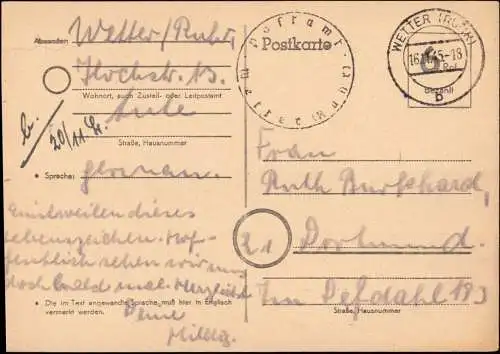 Absender: Wetter/Ruhr,
Hochstr. 13.
Wohnort, auch Zustell- oder Leitpostamt
Straße, Hausnummer
• Sprache: german.
b.
20/11.
Einstweilen dieses
Lebenszeichen. Hof-
fentlich sehen wir uns
doch bald mal. Herzlichst
Deine
• Die im Text angewandte Sprache muß hier in Englisch
vermerkt werden.
Postkarte
Postamt (Ruhr) Wetter
WETTER (RUHR)
16.11.45-18
b
6
Rpf
bezahlt
Frau
Ruth Burkhard,
21 Dortmund.
Im Defdahl 183
Straße, Hausnummer